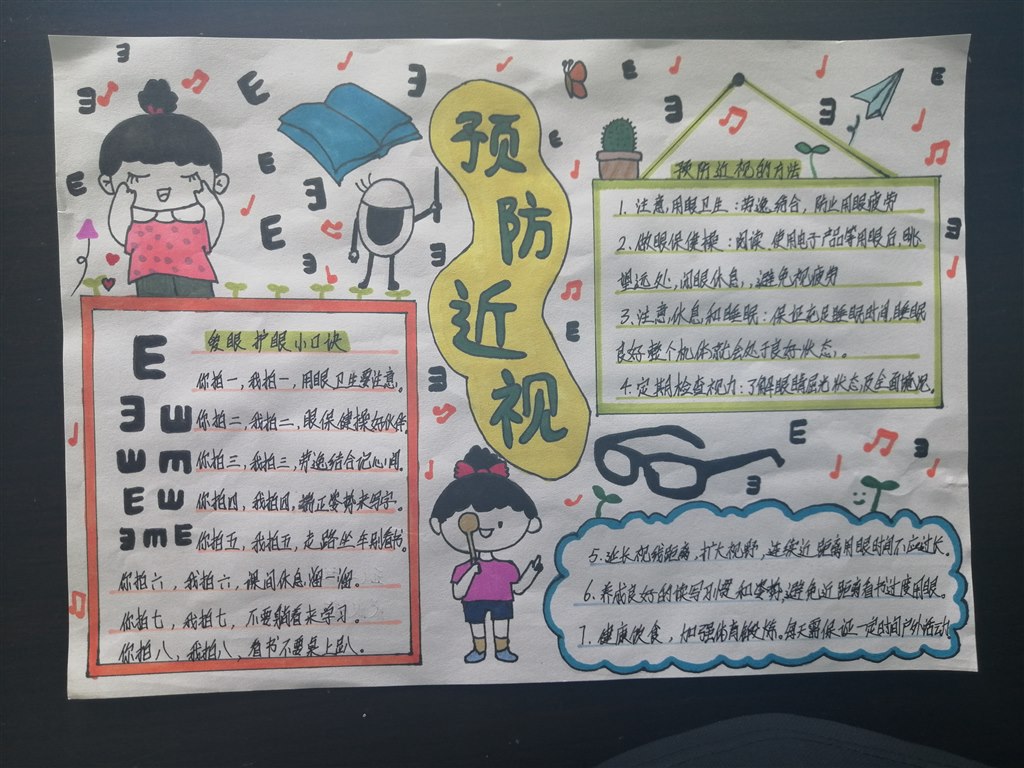 预防近视
爱眼护眼小口诀
你拍一,我拍一,用眼卫生要注意。
你拍二,我拍二,眼保健操好伙伴。
你拍三,我拍三,劳逸结合记心间。
你拍四,我拍四,端正姿势来写字。
你拍五,我拍五,走路坐车别看书。
你拍六,我拍六,课间休息溜一溜。
你拍七,我拍七,不要躺着来学习。
你拍八,我拍八,看书不要桌上趴。
预防近视的方法
1、注意用眼卫生:劳逸结合,防止用眼疲劳
2、做眼保健操:阅读、使用电子产品等用眼后,眺
望远处,闭眼休息,避免视疲劳
3、注意休息和睡眠:保证充足睡眠时间,睡眠
良好整个机体就会处于良好状态。
4、定期检查视力:了解眼睛屈光状态及全面情况。
5、延长视线距离,扩大视野,连续近距离用眼时间不应过长。
6、养成良好的读写习惯和姿势,避免近距离看书过度用眼。
7、健康饮食,加强体育锻炼。每天需保证一定时间户外活动。
E
E E
E E
E E
E E E